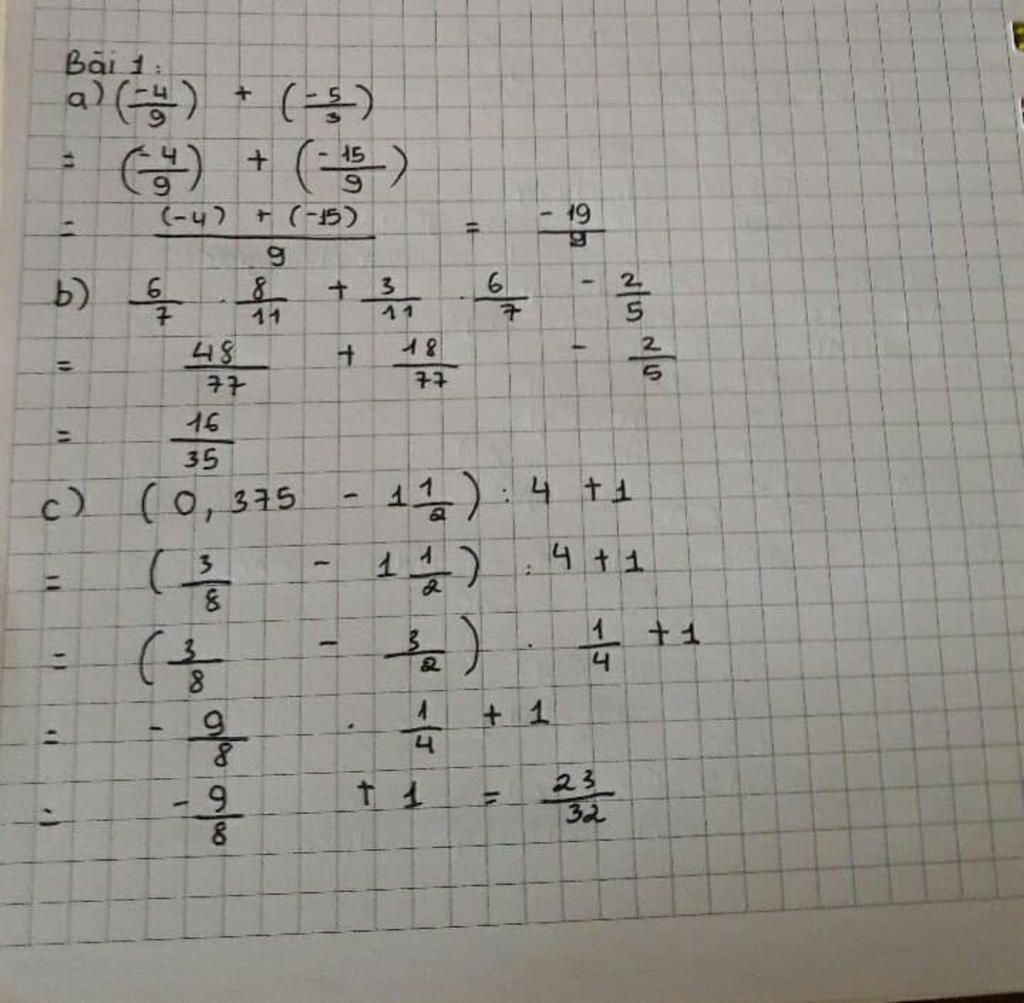 Bài 1:
a) (-4/9) + (-5/3)
= (-4/9) + (-15/9)
= (-4) + (-15)/9 = -19/9
b) 6/7 . 8/11 + 3/11 . 6/7 - 2/5
= 48/77 + 18/77 - 2/5
= 16/35
c) (0,375 - 1 1/2) : 4 + 1
= (3/8 - 1 1/2) : 4 + 1
= (3/8 - 3/2) . 1/4 + 1
= - 9/8 . 1/4 + 1
= - 9/8 + 1 = 23/32